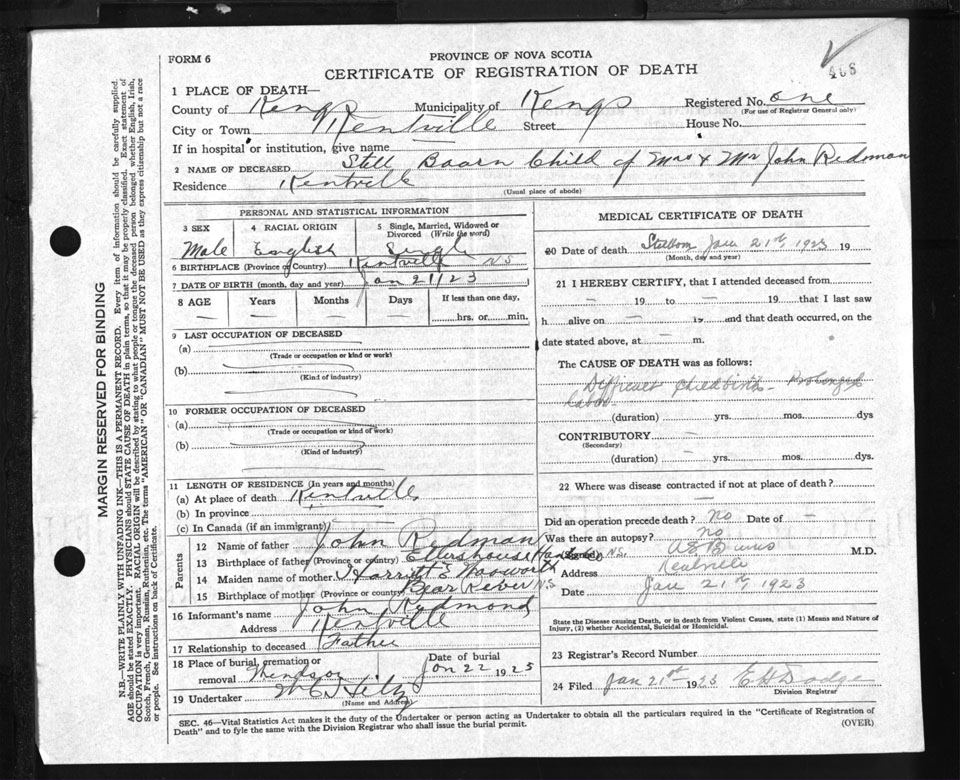 FORM 6
PROVINCE OF NOVA SCOTIA
CERTIFICATE OF REGISTRATION OF DEATH
468
1 PLACE OF DEATH—
County of Kings Municipality of Kings Registered No. one
(For use of Registrar General only)
City or Town Kentville Street House No.
If in hospital or institution, give name
2 NAME OF DECEASED Still Boarn Child of Mrs & Mr John Redman
Residence Kentville
(Usual place of abode)
PERSONAL AND STATISTICAL INFORMATION
3 SEX 4 RACIAL ORIGIN 5 Single, Married, Widowed or Divorced (Write the word)
Male English Singl
6 BIRTHPLACE (Province or Country) Kentville N S
7 DATE OF BIRTH (month, day and year) Jan 21/23
8 AGE Years Months Days If less than one day,
— — — — hrs. or min.
9 LAST OCCUPATION OF DECEASED
(a)
(Trade or occupation or kind or work)
(b)
(Kind of industry)
10 FORMER OCCUPATION OF DECEASED
(a)
(Trade or occupation or kind of work)
(b)
(Kind of industry)
11 LENGTH OF RESIDENCE (In years and months)
(a) At place of death Kentville
(b) In province
(c) In Canada (if an immigrant)
Parents
12 Name of father John Redman
13 Birthplace of father (Province or country) Ellershouse Hants Co N.S.
14 Maiden name of mother Harriett E
15 Birthplace of mother (Province or country) Bear River N.S
16 Informant's name John Redmond
Address Kentville
17 Relationship to deceased Father
18 Place of burial, cremation or removal Windsor Date of burial Jan 22 1925
19 Undertaker
(Name and Address)
MEDICAL CERTIFICATE OF DEATH
20 Date of death Stillborn Jan 21st, 1923 19
(Month, day and year)
21 I HEREBY CERTIFY, that I attended deceased from
— 19 to — 19 that I last saw
h alive on — 19 and that death occurred, on the
date stated above, at — m.
The CAUSE OF DEATH was as follows:
Difficult childbirth — Prolonged
labor
(duration) yrs. mos. dys
CONTRIBUTORY —
(Secondary)
(duration) — yrs. mos. dys.
22 Where was disease contracted if not at place of death?
—
Did an operation precede death? No Date of —
Was there an autopsy? No
(Signed) M.D.
Address Kentville
Date Jan 21st, 1923
State the Disease causing Death, or in death from Violent Causes, state (1) Means and Nature of
Injury, (2) whether Accidental, Suicidal or Homicidal.
23 Registrar's Record Number
24 Filed Jan 21st 1923 E H Dodge
Division Registrar
SEC. 46—Vital Statistics Act makes it the duty of the Undertaker or person acting as Undertaker to obtain all the particulars required in the "Certificate of Registration of
Death" and to fyle the same with the Division Registrar who shall issue the burial permit. (OVER)
MARGIN RESERVED FOR BINDING
N.B.—WRITE PLAINLY WITH UNFADING INK—THIS IS A PERMANENT RECORD. Every item of information should be carefully supplied.
AGE should be stated EXACTLY. PHYSICIANS should STATE CAUSE OF DEATH in plain terms, so that it may be properly classified. Exact statement of
OCCUPATION is very important. RACIAL ORIGIN will be described by stating to what people or tongue the deceased person belonged whether English, Irish,
Scotch, French, German, Russian, Ruthenian, etc. The terms "AMERICAN" OR "CANADIAN" MUST NOT BE USED as they express citizenship but not a race
or people. See instructions on back of Certificate.